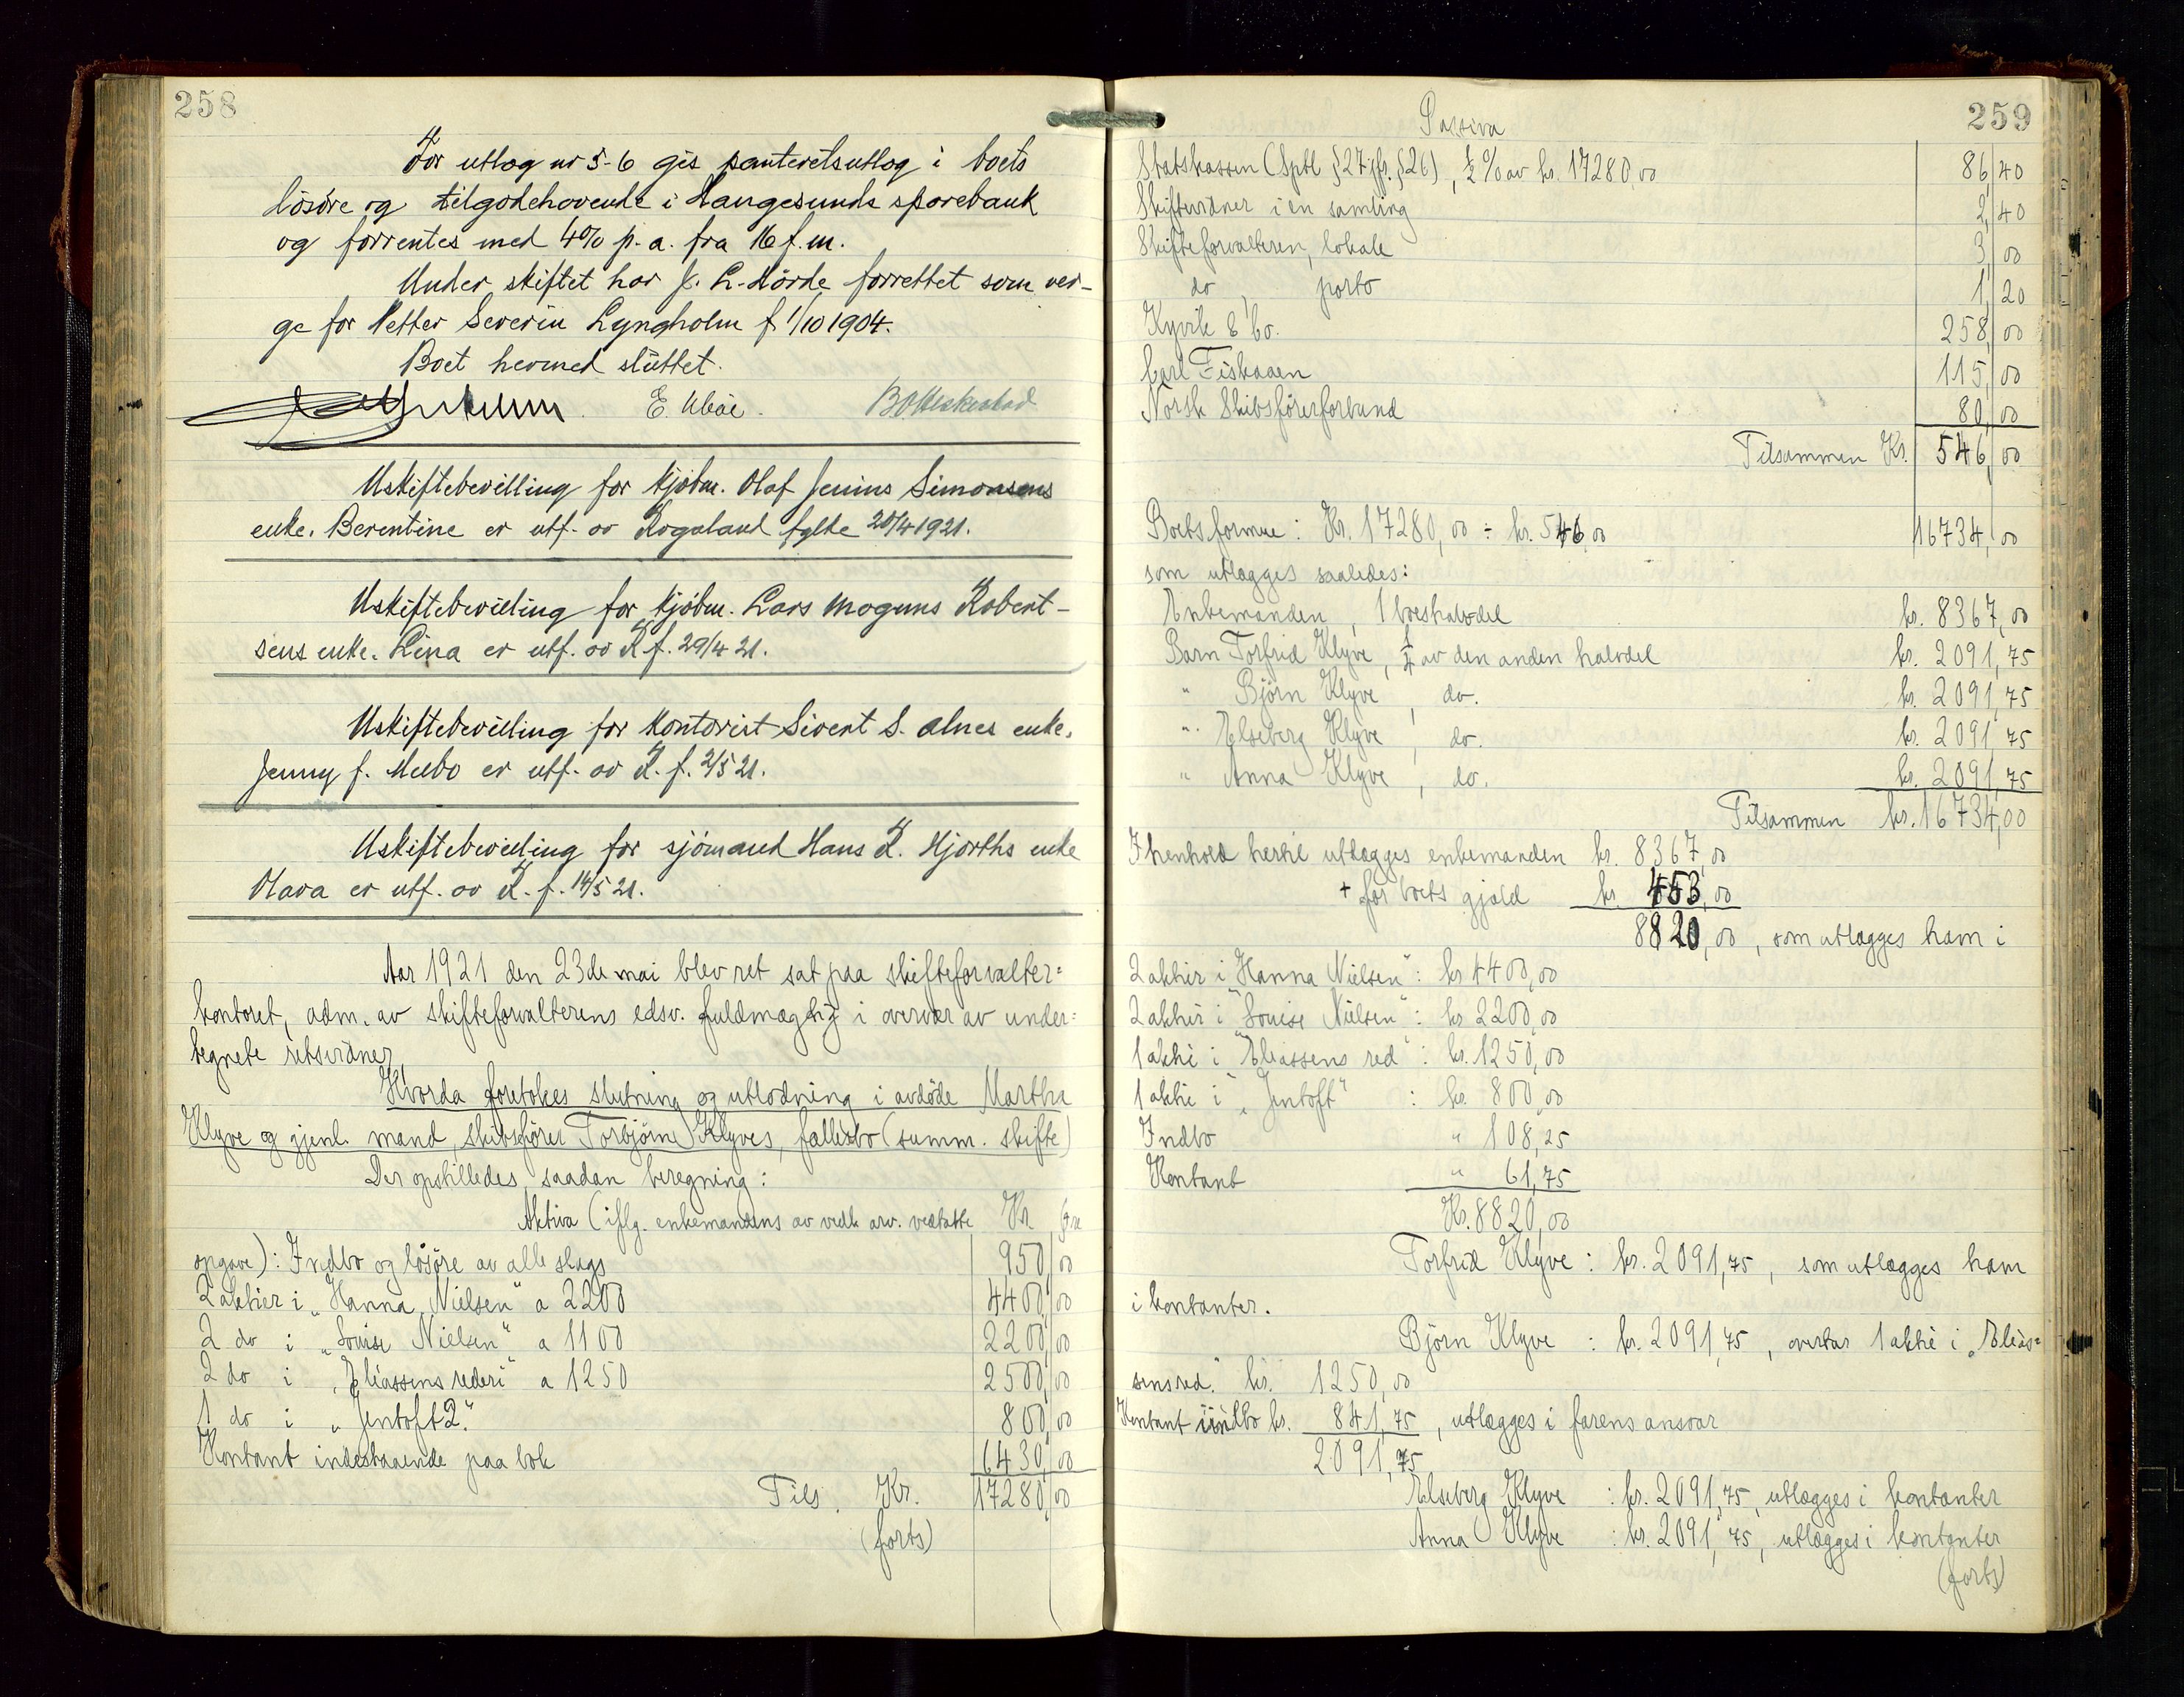 258
For utlog nr 5-6 gis panteretsutlog i boets
lösöre og tilgodehavende i Haugesunds sparebank
og forrentes med 4% p.a. fra 16 f.m.
Under skiftet har J. L. Mörde forrettet som ver-
ge for Petter Severin Lyngholm f 1/10 1904.
Boet hermed sluttet.
E.
Uskiftebevilling for kjöbm. Olaf Jenius Simonsens
enke. Berentine er utf. av Rogaland fylke 28/4 1921.
Uskiftebevilling for kjöbm. Lars Mognus Robert-
sens enke. Lina er utf. av R f. 29/4 21.
Uskiftebevilling for kontorist Sivert S. Alnes enke.
Jenny f. Melbo er utf. av R. f. 2/5 21.
Uskiftebevilling for sjömand Hans R. Hjorths enke
Olava er utf. av R. f. 14/5 21.
Aar 1921 den 23de mai blev ret sat paa skifteforvalter=
kontoret, adm. av skifteforvalterens edsv. fuldmægtig i overvær av under=
tegnete retsvidner
Hvorda foretokes slutning og utlodning i avdöde Martha
Klyve og gjenl. mand, skibsförer Torbjörn Klyves, fællesbo (summ. skifte)
Der opstilledes saadan beregning:
Aktiva (iflg. enkemandens av vedk arv. vedtatte Kr Öre
opgave): Indbo og lösöre av alle slags 950,00
2 aktier i „Hanna Nielsen" a 2200 4400,00
2 do i „Louise Nielsen" a 1100 2200,00
2 do i „Eliassens rederi" a 1250 2500,00
1 do i „Jentoft 2." 800,00
Kontant indestaaende paa bok 6430,00
Tils. Kr. 17280,00
(forts)
259
Passiva
Statskassen (Sptl §27 jfr. §26), ½ % av kr. 17280,00 86,40
Skiftevidner i en samling 2,40
Skifteforvalteren, lokale 3,00
do porto 1,20
Kyvik & Co. 258,00
Carl Fiskaaen 115,00
Norsk Skibsförerforbund 80,00
Tilsammen Kr. 546,00
Boets formue: Kr. 17280,00 ÷ kr. 546,00 16734,00
som utlægges saaledes:
Enkemanden, 1 boeshalvdel kr. 8367,00
Barn Torfrid Klyve, ¼ av den anden halvdel kr. 2091,75
" Björn Klyve, do. kr. 2091,75
" Elseberg Klyve, do. kr. 2091,75
" Anna Klyve, do. kr. 2091,75
Tilsammen kr. 16734,00
I henhold hertil utlægges enkemanden kr. 8367,00
+ for boets gjæld kr. 453,00
8820,00, som utlægges ham i
2 aktier i „Hanna Nielsen": kr 4400,00
2 aktier i „Louise Nielsen": kr 2200,00
1 aktie i „Eliassens red": kr. 1250,00
1 aktie i „Jentoft" : kr. 800,00
Indbo " 108,25
Kontant " 61,75
Kr. 8820,00
Torfrid Klyve: kr. 2091,75, som utlægges ham
i kontanter.
Björn Klyve: kr. 2091,75, overtar 1 aktie i „Elias=
sens red." kr. 1250,00
Kontant indbo kr. 841,75, utlægges i farens ansvar
2091,75
Elseberg Klyve: kr. 2091,75, utlægges i kontanter
Anna Klyve: kr. 2091,75, utlægges i kontanter
(forts)